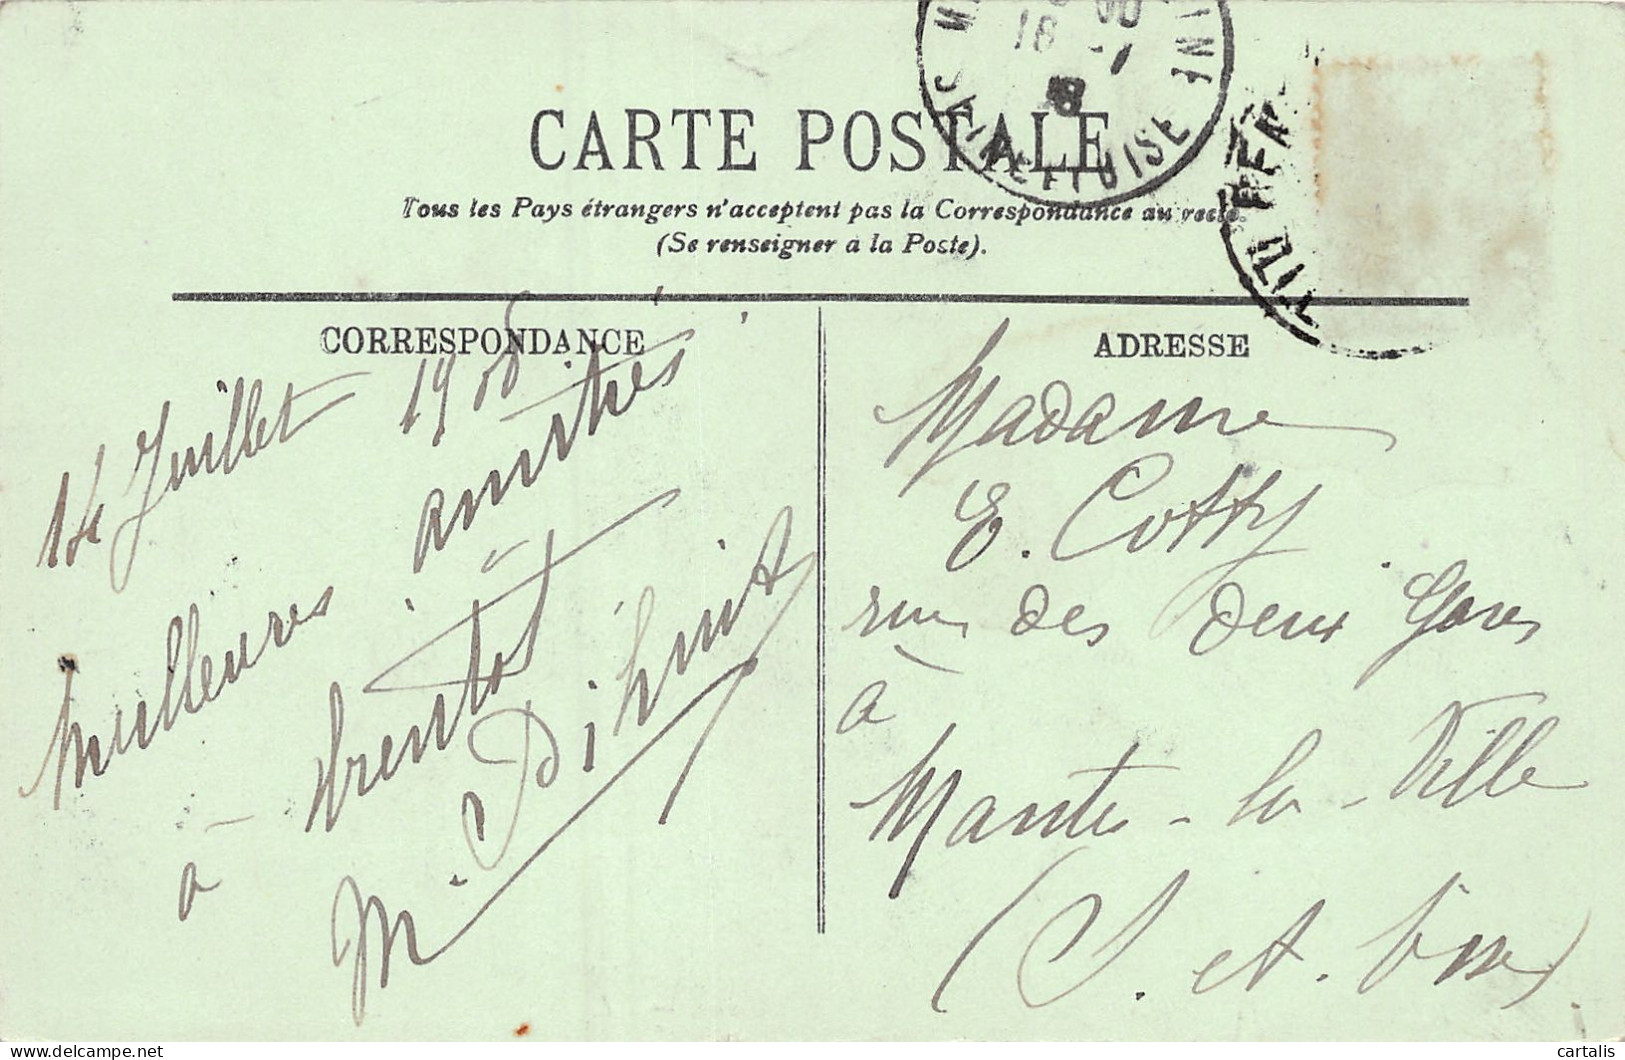 CARTE POSTALE
Tous les Pays étrangers n'acceptent pas la Correspondance au recto.
(Se renseigner à la Poste).
CORRESPONDANCE
14 Juillet 1908
meilleures amitiés
à bientôt
M.
ADRESSE
Madame
E. Cotty
rue des deux Gares
à
Mantes-la-Ville
(S. et Oise)
SEINE ET OISE
18 -7
08
cartalis